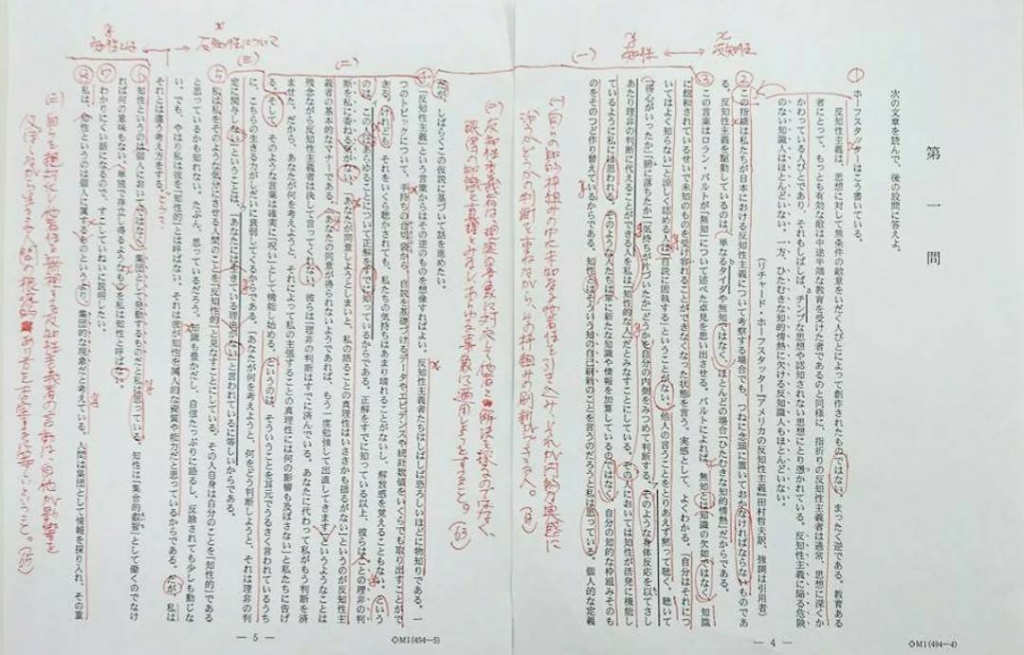 第一問
次の文章を読んで、後の設問に答えよ。
① ホーフスタッターはこう書いている。
反知性主義は、思想に対して無条件の敵意をいだく人びとによって創作されたものではない。まったく逆である。教育ある
者にとって、もっとも有効な敵は中途半端な教育を受けた者であるのと同様に、指折りの反知性主義者は通常、思想に深くか
かわっている人びとであり、それもしばしば、チンプな思想や認知されない思想にとり憑かれている。反知性主義に陥る危険
のない知識人はほとんどいない。一方、ひたむきな知的情熱に欠ける反知識人もほとんどいない。
（リチャード・ホーフスタッター『アメリカの反知性主義』田村哲夫訳、強調は引用者）
② この指摘は私たちが日本における反知性主義について考察する場合でも、つねに念頭に置いておかなければならないものであ
る。反知性主義を駆動しているのは、単なるタイダや無知ではなく、ほとんどの場合「ひたむきな知的情熱」だからである。
③ この言葉はロラン・バルトが「無知」について述べた卓見を思い出させる。バルトによれば、無知とは知識の欠如ではなく、知識
に飽和されているせいで未知のものを受け容れることができなくなった状態を言う。実感として、よくわかる。「自分はそれにつ
いてはよく知らない」と涼しく認める人は「自説に固執する」ということがない。他人の言うことをとりあえず黙って聴く。聴いて
「得心がいったか」「腑に落ちたか」「気持ちが片づいたか」どうかを自分の内側をみつめて判断する。そのような身体反応を以てさし
あたり理非の判断に代えることができる人を私は「知性的な人」だとみなすことにしている。その人においては知性が活発に機能し
ているように私には思われる。そのような人たちは単に新たな知識や情報を加算しているのではなく、自分の知的な枠組みそのも
のをそのつど作り替えているからである。知性とはそういう知の自己刷新のことを言うのだろうと私は思っている。個人的な定義
反知性
知性
(一)
— 4 —
◇M1(494—4)
だが、しばらくこの仮説に基づいて話を進めたい。
④ 「反知性主義」という言葉からはその逆のものを想像すればよい。反知性主義者たちはしばしば恐ろしいほどに物知りである。一
つのトピックについて、手持ちの合切袋から、自説を基礎づけるデータやエビデンスや統計数値をいくらでも取り出すことがで
きる。けれども、それをいくら聴かされても、私たちの気持ちはあまり晴れることがないし、解放感を覚えることもない。という
のは、この人はあらゆることについて正解をすでに知っているからである。正解をすでに知っている以上、彼らはことの理非の判
断を私に委ねる気がない。「あなたが同意しようとしまいと、私の語ることの真理性はいささかも揺るがない」というのが反知性主
義者の基本的なマナーである。「あなたの同意が得られないようであれば、もう一度勉強して出直してきます」というようなことは
残念ながら反知性主義者は決して言ってくれない。彼らは「理非の判断はすでに済んでいる。あなたに代わって私がもう判断を済
ませた。だから、あなたが何を考えようと、それによって私の主張することの真理性には何の影響も及ぼさない」と私たちに告げ
る。そして、そのような言葉は確実に「呪い」として機能し始める。というのは、そういうことを耳元でうるさく言われているうち
に、こちらの生きる力がしだいに衰弱してくるからである。「あなたが何を考えようと、何をどう判断しようと、それは理非の判
定に関与しない」ということは、「あなたには生きている理由がない」と言われているに等しいからである。
⑤ 私は私をそのような気分にさせる人間のことを「反知性的」と見なすことにしている。その人自身は自分のことを「知性的」である
と思っているかも知れない。たぶん、思っているだろう。知識も豊かだし、自信たっぷりに語るし、反論されても少しも動じな
い。でも、やはり私は彼を「知性的」とは呼ばない。それは彼が知性を属人的な資質や能力だと思っているからである。だが、私は
それとは違う考え方をする。
⑥ 知性というのは個人においてではなく、集団として発動するものだと私は思っている。知性は「集合的叡智」として働くのでなけ
れば何の意味もない。「単独で存立し得るようなもの」を私は知性と呼ばない。
⑦ わかりにくい話になるので、すこしていねいに説明したい。
⑧ 私は、知性というのは個人に属するものというより、集団的な現象だと考えている。人間は集団として情報を採り入れ、その重
反知性について
知性とは
(二)
(三)
— 5 —
◇M1(494—5)